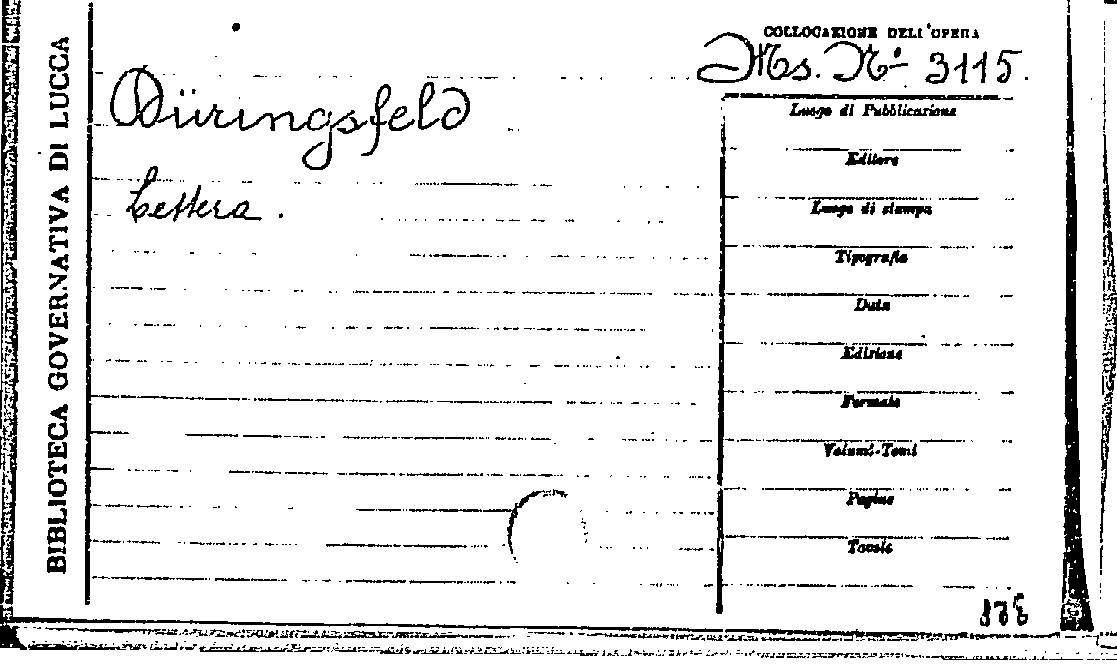 BIBLIOTECA GOVERNATIVA DI LUCCA
COLLOCAZIONE DELL'OPERA
Ms. N° 3115.
Düringsfeld
Lettera.
Luogo di Pubblicazione
Editore
Luogo di stampa
Tipografia
Data
Edizione
Formato
Volumi-Tomi
Pagine
Tavole